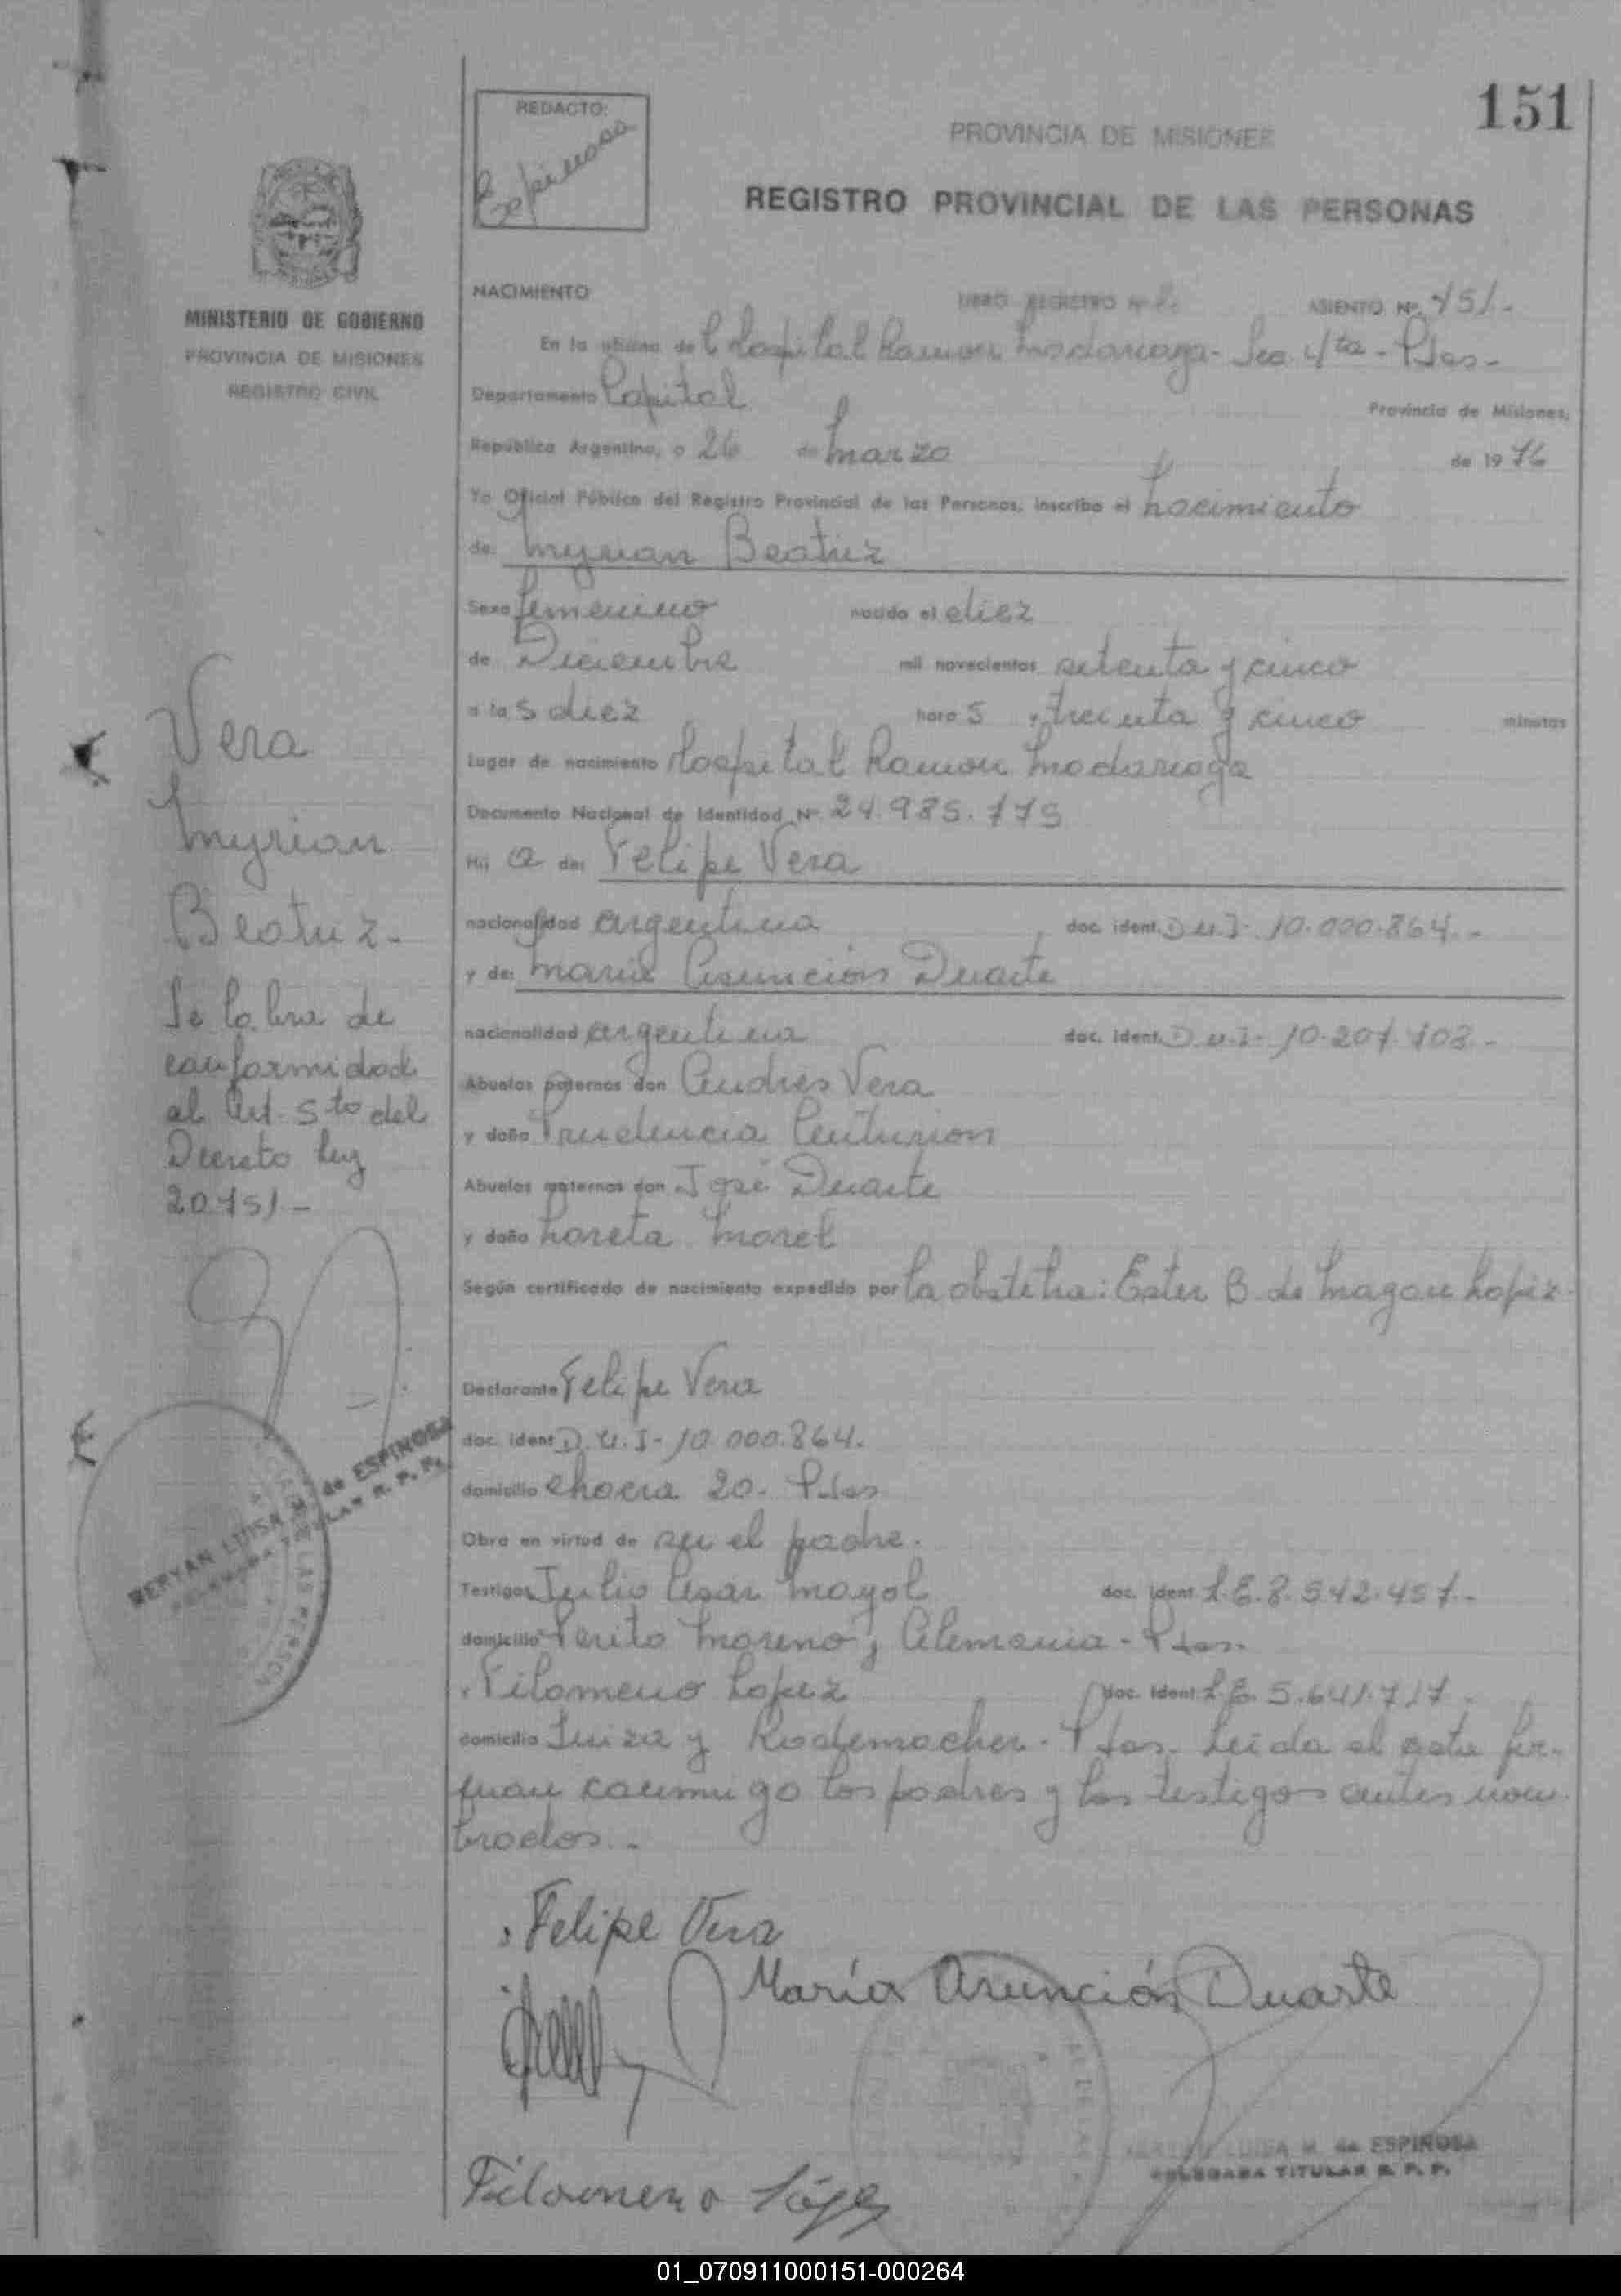 151
REDACTO:
Espinosa
PROVINCIA DE MISIONES
REGISTRO PROVINCIAL DE LAS PERSONAS
MINISTERIO DE GOBIERNO
PROVINCIA DE MISIONES
REGISTRO CIVIL
NACIMIENTO LIBRO REGISTRO Nº ASIENTO Nº 151.-
En la oficina del Hospital Ramon Madariaga - Sec. 4ta - Pdas -
Departamento Capital Provincia de Misiones,
República Argentina, a 26 de Marzo de 1976
Yo Oficial Público del Registro Provincial de las Personas, inscribo el Nacimiento
de: Myrian Beatriz
Sexo femenino nacido el diez
de Diciembre mil novecientos setenta y cinco
a las diez horas treinta y cinco minutos
Lugar de nacimiento Hospital Ramon Madariaga
Documento Nacional de Identidad Nº 24.985.175
Hija de: Felipe Vera
nacionalidad argentina doc. ident. D.U.I- 10.000.864.-
y de: Maria Asunción Duarte
nacionalidad argentina doc. ident. D.U.I- 10.207.103.-
Abuelos paternos don Andres Vera
y doña Prudencia Centurion
Abuelos maternos don José Duarte
y doña Loreta Morel
Según certificado de nacimiento expedido por la obstetra: Ester B. de Magan Lopez.
Declarante Felipe Vera
doc. ident D.U.I- 10.000.864.
domicilio chacra 20. Pdas
Obra en virtud de ser el padre.
Testigos Julio Cesar Mayol doc. ident L.E. 8.542.457.-
domicilio Perito Moreno y Alemania - Pdas.
y Filomeno Lopez doc. ident L.E. 5.641.717.
domicilio Suiza y Rademacher - Pdas. Leida el acta fir-
man conmigo los padres y los testigos antes nom-
brados.-
Vera
Myrian
Beatriz.-
Se labra de
conformidad
al Art. 5to del
Decreto Ley
20.751.-
MERYAN LUISA M. de ESPINOSA
DELEGADA TITULAR R. P. P.
Felipe Vera
María Asunción Duarte
Filomeno López
LUISA M. de ESPINOSA
DELEGADA TITULAR R. P. P.
01_070911000151-000264